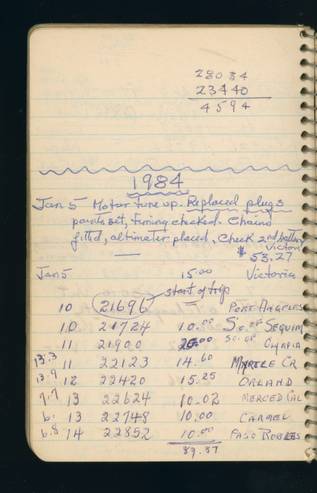 28034
23440
4594
1984
Jan 5 Motor tune up. Replaced plugs
points set, timing checked. Chains
fitted, altimeter placed, Check 2nd battery
Victoria
$ 53.27
Jan 5 15.00 Victoria
start of trip
10 21696 Port Angeles
10 21724 10.00 So. of Sequim
11 21900 20.00 So. of Olympia
13.3 11 22123 14.60 Myrtle Cr
13.9 12 22420 15.25 Orland
7.7 13 22624 10.02 Merced Cal
6. 13 22748 10.00 Carmel
6.8 14 22852 10.00 Paso Robles